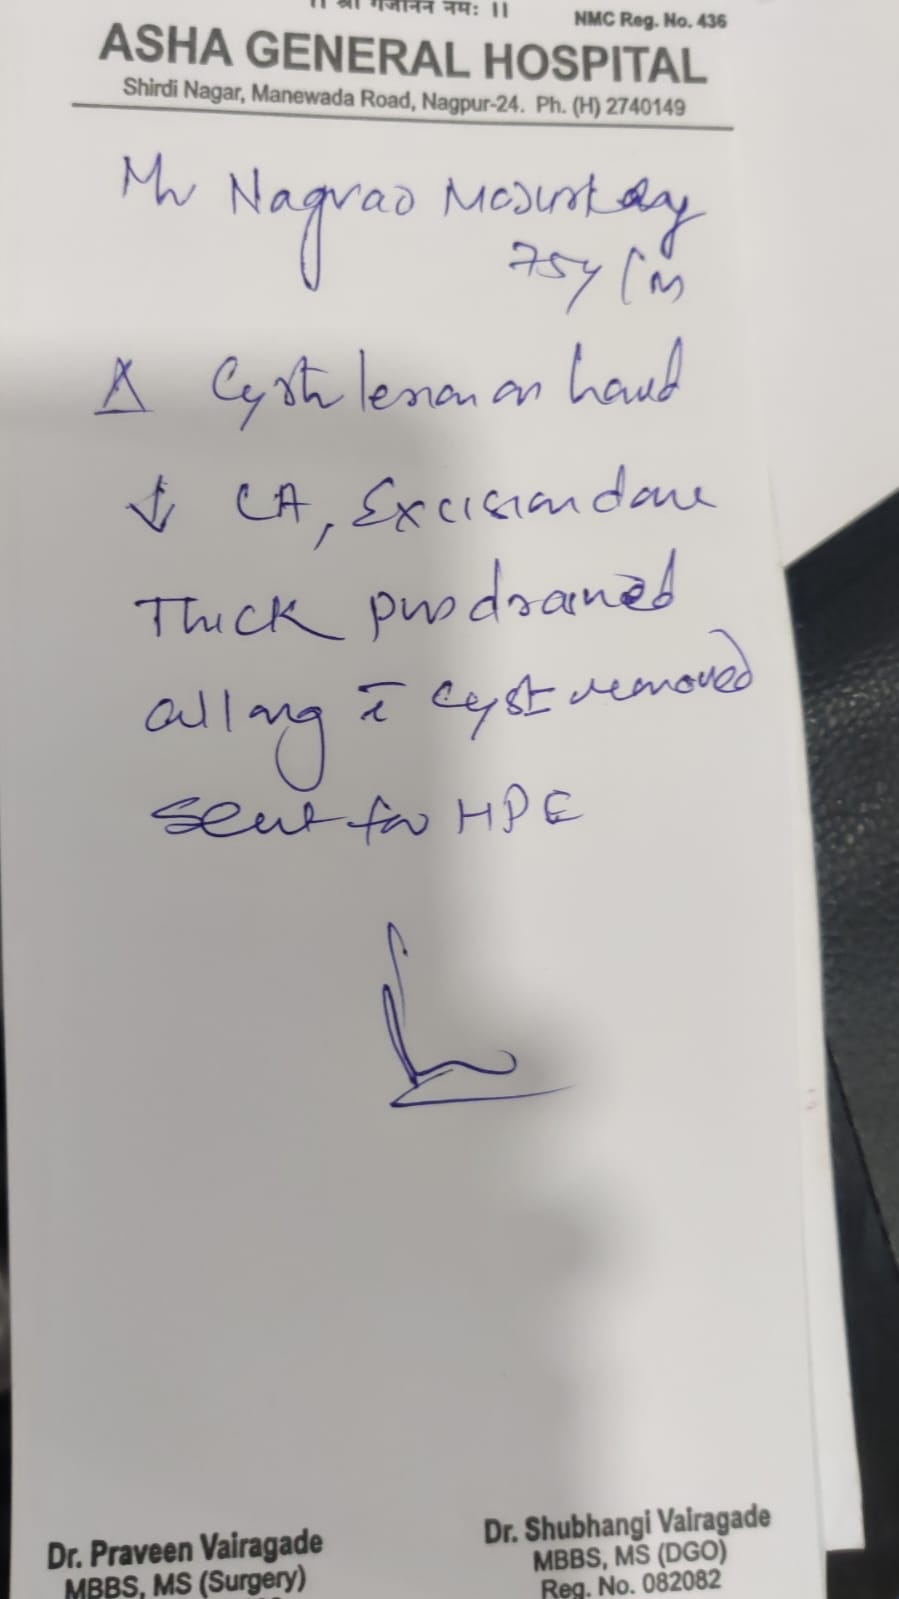 ।। श्री गजानन नमः ।।
NMC Reg. No. 436
ASHA GENERAL HOSPITAL
Shirdi Nagar, Manewada Road, Nagpur-24. Ph. (H) 2740149
Mr Nagrao
75y / M
Δ Cystic lesion on hand
↓ LA, Excision done
Thick pus drained
all ong c̄ cyst removed
sent for HPE
Dr. Praveen Vairagade
MBBS, MS (Surgery)
Dr. Shubhangi Vairagade
MBBS, MS (DGO)
Reg. No. 082082